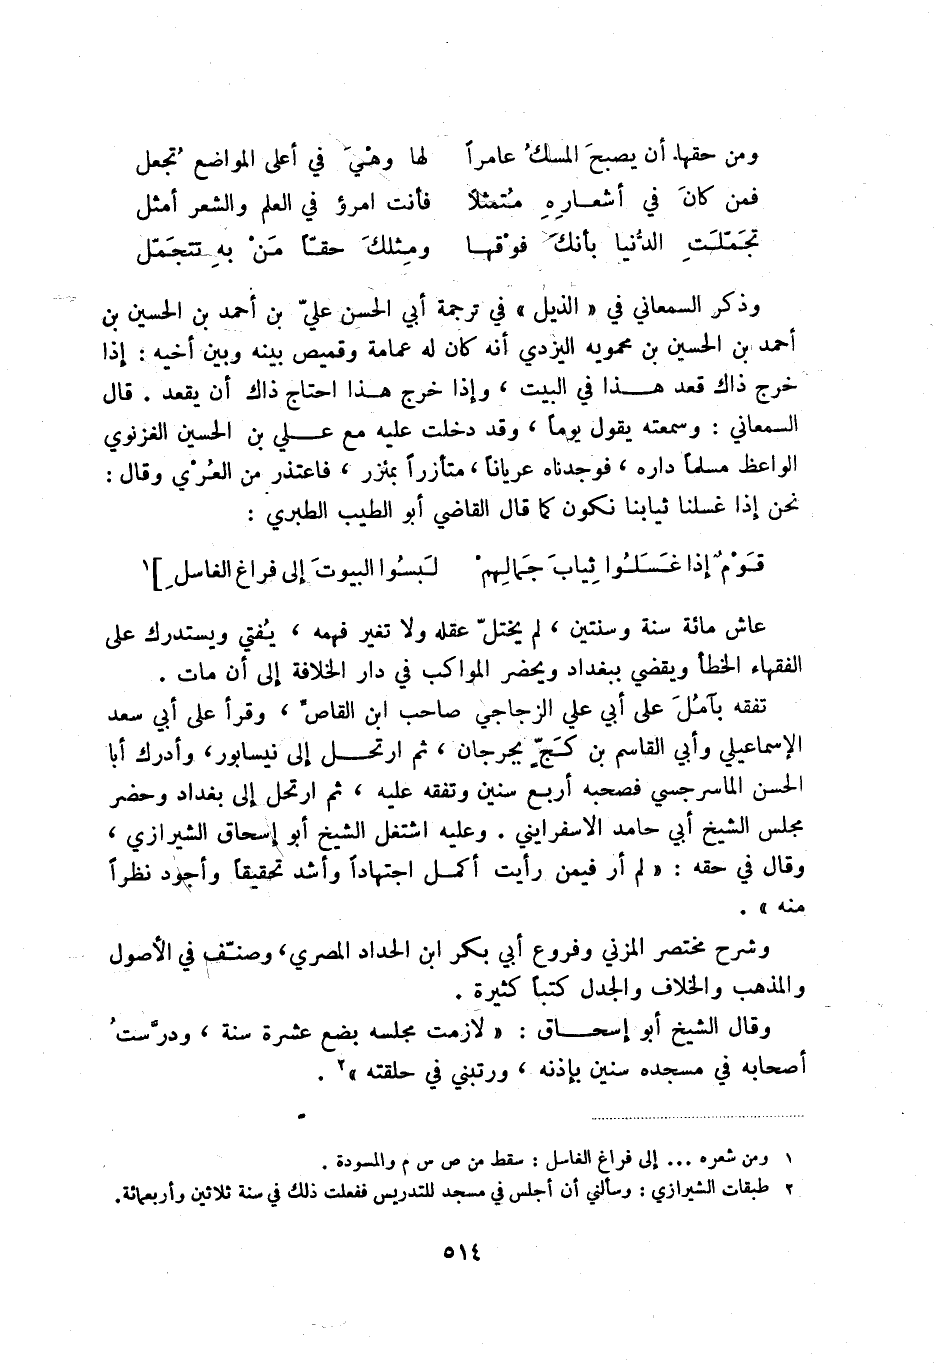 ومن حقها أن يصبحَ المسكُ عامراً لها وهْيَ في أعلى المواضع تُجعل
فمن كانَ في أشعـاره مُتمثلاً فأنت امرؤ في العلم والشعر أمثل
تجَمّلَتِ الدُّنيا بأنكَ فوْقهـا ومِثلكَ حقـّاً مَنْ بهِ تتجَمّل
وذكر السمعاني في « الذيل » في ترجمة أبي الحسن عليّ بن أحمد بن الحسين بن
أحمد بن الحسين بن محمويه اليزدي أنه كان له عمامة وقميص بينه وبين أخيه : إذا
خرج ذاك قعد هـذا في البيت ، وإذا خرج هـذا احتاج ذاك أن يقعد . قال
السمعاني : وسمعته يقول يوماً ، وقد دخلت عليه مع عـلي بن الحسين الغزنوي
الواعظ مسلماً داره ، فوجدناه عرياناً ، متأزراً بمئزر ، فاعتذر من العُرْي وقال :
نحن إذا غسلنا ثيابنا نكون كما قال القاضي أبو الطيب الطبري :
قـَوْمٌ إذا غـَسَـلـُوا ثِيابَ جَمالِهِمْ لـَبـِسُوا البيوتَ إلى فراغِ الغاسل ِ]١
عاش مائة سنة وسنتين ، لم يختلّ عقله ولا تغير فهمه ، يُفتي ويستدرك على
الفقهاء الخطأ ويقضي ببغداد ويحضر المواكب في دار الخلافة إلى أن مات .
تفقه بآمُلَ على أبي علي الزجاجي صاحب ابن القاصّ ، وقرأ على أبي سعد
الإسماعيلي وأبي القاسم بن كـَجّ بجرجان ، ثم ارتحـل إلى نيسابور ، وأدرك أبا
الحسن الماسرجسي فصحبه أربع سنين وتفقه عليه ، ثم ارتحل إلى بغداد وحضر
مجلس الشيخ أبي حامد الاسفرايني . وعليه اشتغل الشيخ أبو إسحاق الشيرازي ،
وقال في حقه : « لم أر فيمن رأيت أكمـل اجتهاداً وأشد تحقيقاً وأجود نظراً
منه » .
وشرح مختصر المزني وفروع أبي بكر ابن الحداد المصري ، وصنـّف في الأصول
والمذهب والخلاف والجدل كتباً كثيرة .
وقال الشيخ أبو إسحـاق : « لازمت مجلسه بضع عشرة سنة ، ودرَّستُ
أصحابه في مسجده سنين بإذنه ، ورتبني في حلقته »٢ .
١ ومن شعره ... إلى فراغ الغاسل : سقط من ص س م والمسودة .
٢ طبقات الشيرازي : وسألني أن أجلس في مسجد للتدريس ففعلت ذلك في سنة ثلاثين وأربعمائة .
٥١٤